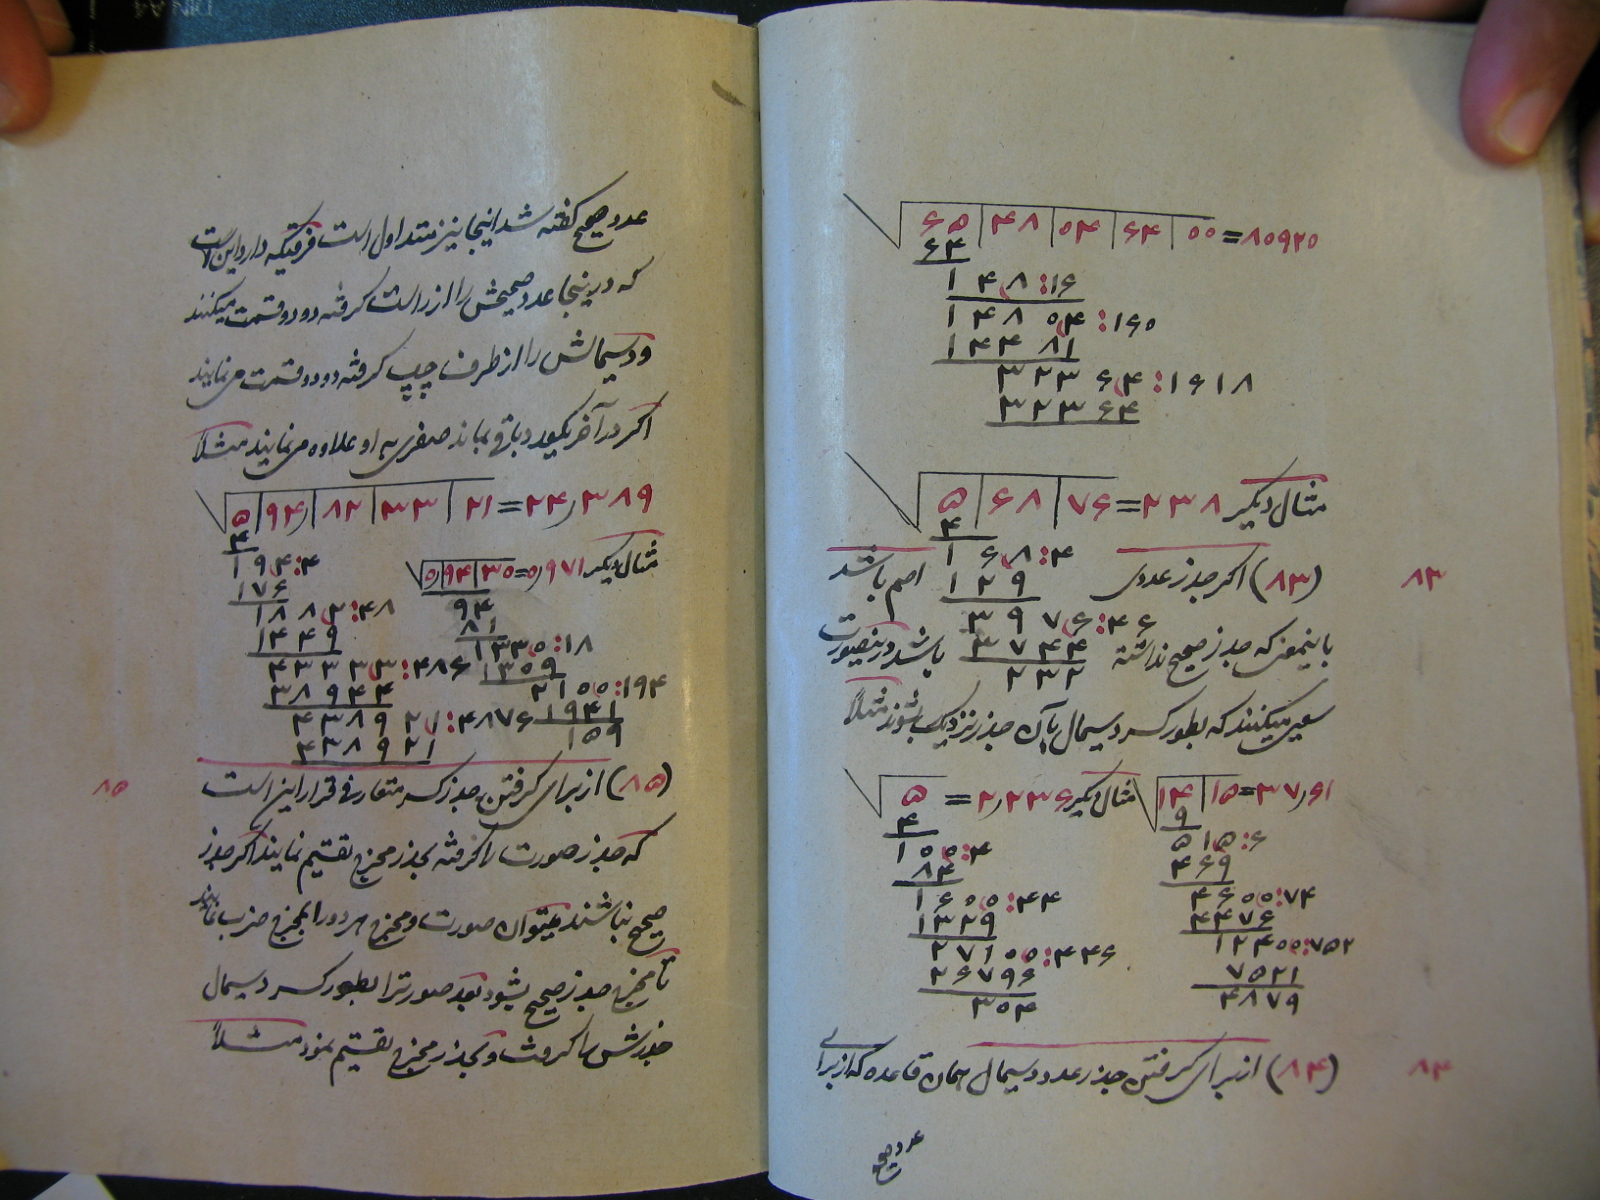 ۶۵ | ۴۸ | ۰۴ | ۶۴ | ۰۰ = ۸۰۹۲۰
۶۴
۱ ۴ ۸ : ۱۶
۱ ۴ ۸ ۰۴ : ۱۶۰
۱ ۴ ۴ ۸۱
۳۲۳ ۶۴ : ۱۶۱۸
۳۲۳۶۴
مثال دیگر ۵ | ۶۸ | ۷۶ = ۲۳۸
۴
۱ ۶۸ : ۴
۱ ۲ ۹
۳ ۹ ۷۶ : ۴۶
۳ ۷ ۴۴
۲۳۲
۸۳ (۸۳) اکر جذر عددی اصم باشد
باینمعنی که جذر صحیح نداشته باشد درینصورت
سعی میکنند که بطور کسر دسیمال بآن جذر نزدیک بشوند مثلاً
۱۴ | ۱۵ = ۳۷٫۶۱
۹
۵ ۱۵ : ۶
۴۶۹
۴۶۰۰ : ۷۴
۴۴۷۶
۱۲۴۰۰ : ۷۵۲
۷۵۲۱
۴۸۷۹
مثال دیگر ۵ = ۲٫۲۳۶
۴
۱۰۰ : ۴
۸۴
۱۶۰۰ : ۴۴
۱۳۲۹
۲۷۱۰۰ : ۴۴۶
۲۶۷۹۶
۳۰۴
۸۴ (۸۴) از برای کرفتن جذر عدد دسیمال همان قاعده که از برای
عدد صحیح
عدد صحیح کفته شد اینجا نیز متداول است فرقیکه دارد این است
که درینجا عدد صحیحش را از راست کرفته دو دو قسمت میکنند
و دسیمالش را از طرف چپ کرفته دو دو قسمت می نمایند
اکر در آخر یکعدد باقی بماند صفری به او علاوه می نمایند مثلاً
۵ | ۹۴٫ | ۸۲ | ۳۳ | ۲۱ = ۲۴٫۳۸۹
۴
۱ ۹۴ : ۴
۱۷۶
۱۸۸۲ : ۴۸
۱۴۴۹
۴۳۳۳۳ : ۴۸۶
۳۸۹۴۴
۴۳۸۹ ۲۱ : ۴۸۷۶
۴۳۸۹۲۱
مثال دیکر ۰٫ | ۹۴ | ۳۰ = ۰٫۹۷۱
۹۴
۸۱
۱۳۳۰ : ۱۸
۱۳۰۹
۲۱۰۰ : ۱۹۴
۱۹۴۱
۱۵۹
۸۵ (۸۵) از برای کرفتن جذر کسر متعارفی قرار این است
که جذر صورت را کرفته بجذر مخرج تقسیم نمایند اکر جذر
صحیح نباشند میتوان صورت و مخرج هر دو را بمخرج ضرب نمایند
تا مخرج جذر صحیح بشود بعد صورترا بطور کسر دسیمال
جذرش را کرفت و بجذر مخرج تقسیم نمود مثلاً